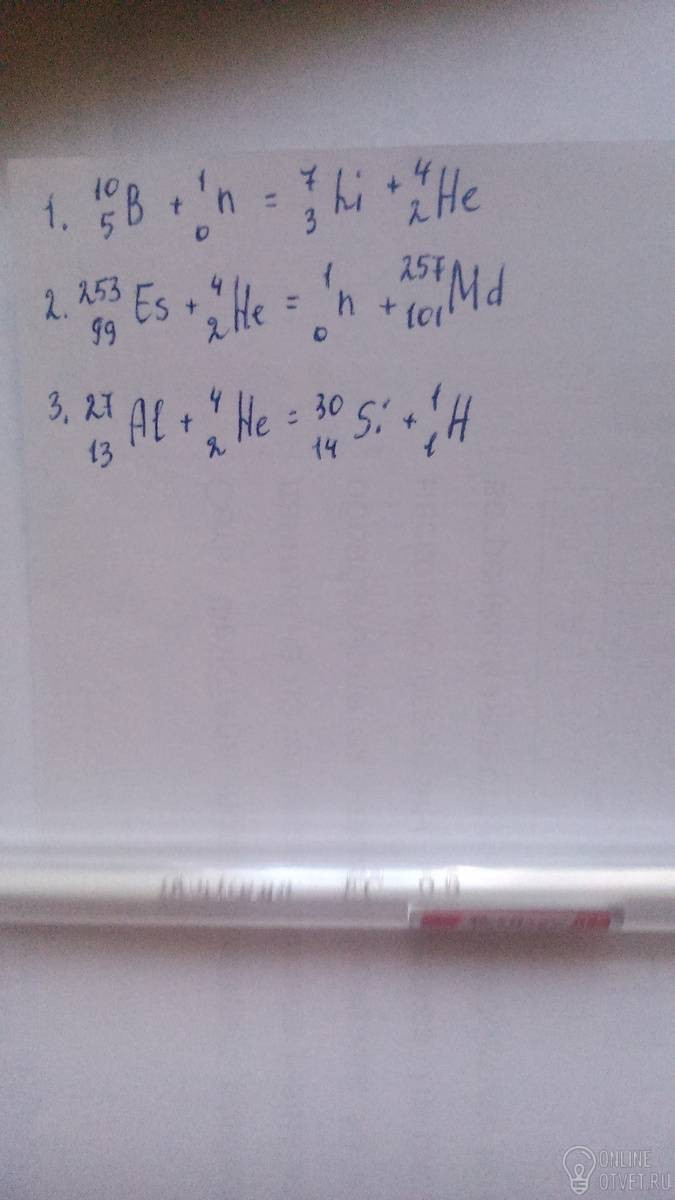 1. ¹⁰₅B + ¹₀n = ⁷₃Li + ⁴₂He
2. ²⁵³₉₉Es + ⁴₂He = ¹₀n + ²⁵⁷₁₀₁Md
3. ²⁷₁₃Al + ⁴₂He = ³⁰₁₄Si + ¹₁H
ONLINE
OTVET.RU